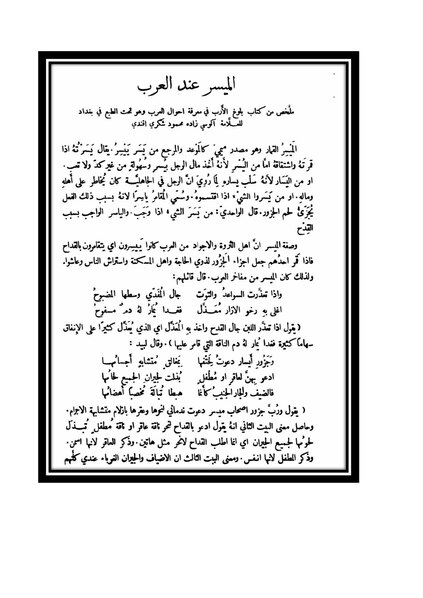 الميسر عند العرب
ملخص من كتاب بلوغ الأرب في معرفة احوال العرب وهو تحت الطبع في بغداد
للعلامة آلوسي زاده محمود شكري افندي
الميسر القمار وهو مصدر ميمي كالموعد والمرجع من يَسَر يَيْسِر. يقال يَسَرْتُهُ اذا
قمرتهُ واشتقاقهُ امَّا من اليُسر لأنَّهُ أَخذ مال الرجل بيُسر وسُهولةٍ من غير كدّ ولا تعب.
او من اليَسَار لأَنَّهُ سلب يساره لِما رُوي انَّ الرجل في الجاهليَّـة كان يُخاطر على أَهلهِ
ومالهِ. او من يَسَروا الشيء اذا اقتسموهُ. وسُمّي المُقامر ياسرًا لانهُ بسبب ذلك الفعل
يُجزّئ لحم الجزور. قال الواحديّ: من يَسَرَ الشيء اذا وَجَبَ. والياسر الواجب بسبب
القِدْح
وصفة الميسر انَّ اهل الثروة والاجواد من العرب كانوا يَيْسِرون اي يتقامرون بالقداح
فاذا قمر احدُهم جعل اجزاء الجَزُور لذوي الحاجة واهل المسكنة واستراش الناس وعاشوا.
ولذلك كان الميسر من مفاخر العرب. قال قائلهم:
واذا تعذَّرت السواعدُ والتوَت جال المُفَدّي وسطَها المضبوحُ
اغلى بهِ رخوُ الازار مُعَــذَّل فغــدا يُمارُ لهُ دمٌ مسفوحُ
(يقول اذا تعذَّر اللبن جال القداح واخذ به المُعَذَّل اي الذي يُعذَّل كثيرًا على الإنفاق
سهامًا كثيرة فغدا يمار لهُ دم الناقة التي قامر عليها). وقال لبيد:
وجَزُورِ أَيسارٍ دعوتُ لحتفها بمغالقٍ متشابهٍ أَجسامُهــا
ادعو بهنَّ لعاقرٍ او مُطْفِلٍ بُذلت لجيرانِ الجميع لحامُها
فالضيفُ والجارُ الجنيبُ كأنَّما هبطا تَبالةَ مُخصبًا أَهضامُها
(يقول وربَّ جزور اصحاب ميسر دعوت ندمائي لنحرها وعقرها بأزلام متشابهة الاجرام.
وحاصل معنى البيت الثاني انهُ يقول ادعو بالقداح لنحر ناقة عاقر او ناقة مطفل تُبــذل
لحومُها لجميع الجيران اي انما اطلب القداح لأنحر مثل هاتين. وذكر العاقر لانها اسمن.
وذكر المطفل لانها انفس. ومعنى البيت الثالث ان الاضياف والجيران الغرباء عندي كأنَّهم